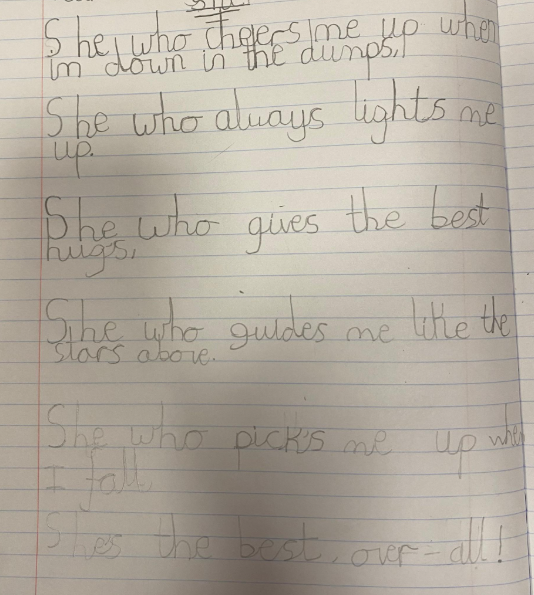 She
She who cheers me up when
im down in the dumps,
She who always lights me
up.
She who gives the best
hugs,
She who guides me like the
stars above.
She who picks me up when
I fall,
Shes the best, over-all!